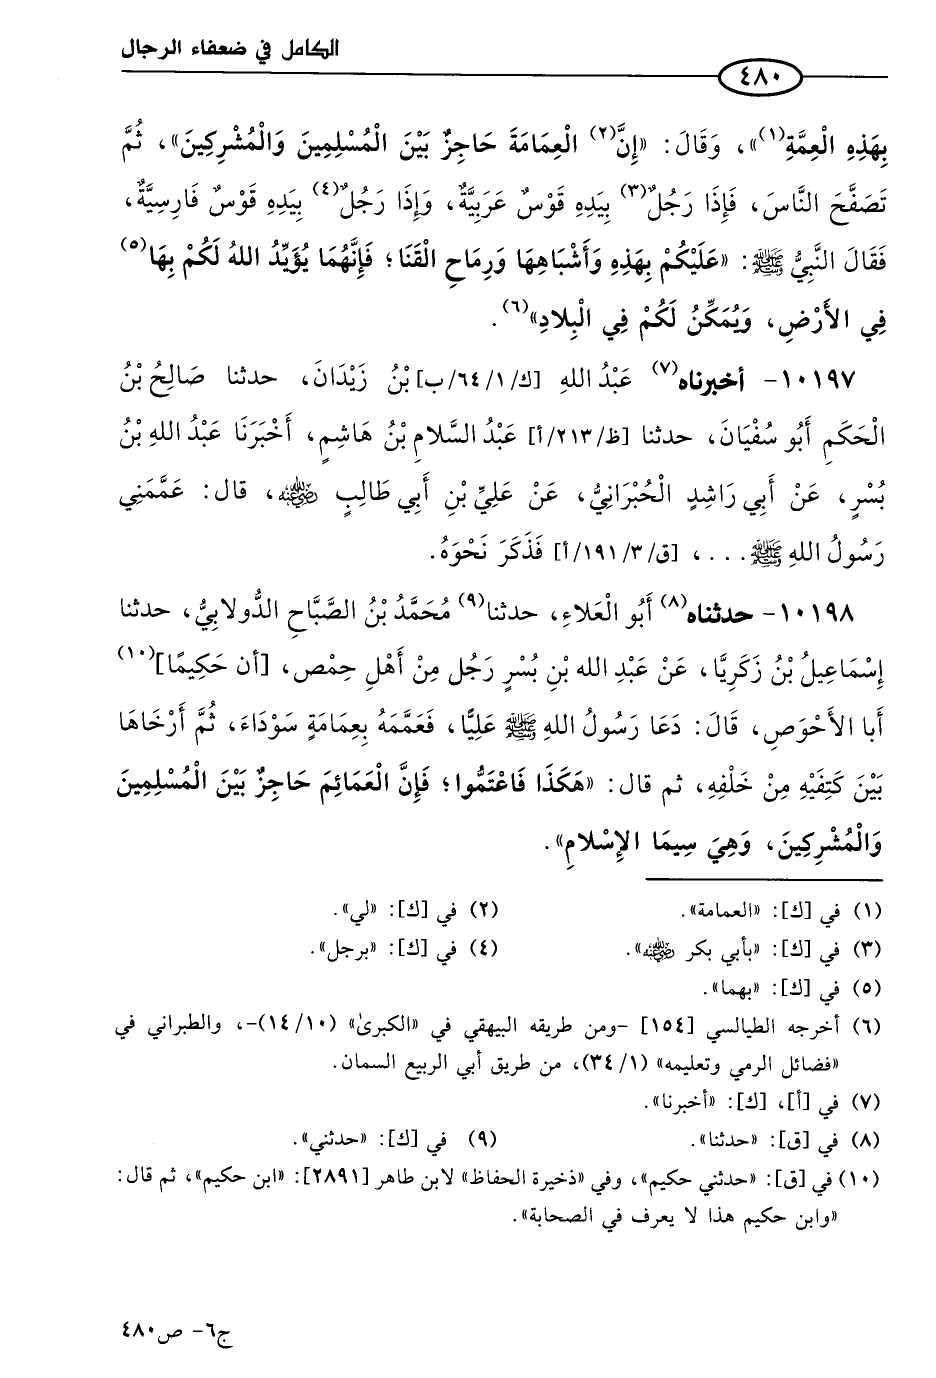 الكامل في ضعفاء الرجال
٤٨٠
بِهَذِهِ الْعِمَّةِ(١)»، وَقَالَ: «إِنَّ(٢) الْعِمَامَةَ حَاجِزٌ بَيْنَ الْمُسْلِمِينَ وَالْمُشْرِكِينَ»، ثُمَّ
تَصَفَّحَ النَّاسَ، فَإِذَا رَجُلٌ(٣) بِيَدِهِ قَوْسٌ عَرَبِيَّةٌ، وَإِذَا رَجُلٌ(٤) بِيَدِهِ قَوْسٌ فَارِسِيَّةٌ،
فَقَالَ النَّبِيُّ ﷺ: «عَلَيْكُمْ بِهَذِهِ وَأَشْبَاهِهَا وَرِمَاحِ الْقَنَا؛ فَإِنَّهُمَا يُؤَيِّدُ اللهُ لَكُمْ بِهَا(٥)
فِي الأَرْضِ، وَيُمَكِّنُ لَكُمْ فِي الْبِلادِ»(٦).
١٠١٩٧- أخبرناه(٧) عَبْدُ اللهِ [ك/٦٤/١/ب] بْنُ زَيْدَانَ، حدثنا صَالِحُ بْنُ
الْحَكَمِ أَبُو سُفْيَانَ، حدثنا [ظ/٢١٣/أ] عَبْدُ السَّلامِ بْنُ هَاشِمٍ، أَخْبَرَنَا عَبْدُ اللهِ بْنُ
بُسْرٍ، عَنْ أَبِي رَاشِدٍ الْحُبْرَانِيُّ، عَنْ عَلِيِّ بْنِ أَبِي طَالِبٍ رضي الله عنه، قال: عَمَّمَنِي
رَسُولُ اللهِ ﷺ . . .، [ق/١٩١/٣/أ] فَذَكَرَ نَحْوَهُ.
١٠١٩٨- حدثناه(٨) أَبُو الْعَلاءِ، حدثنا(٩) مُحَمَّدُ بْنُ الصَّبَّاحِ الدُّولابِيُّ، حدثنا
إِسْمَاعِيلُ بْنُ زَكَرِيَّا، عَنْ عَبْدِ الله بْنِ بُسْرٍ رَجُل مِنْ أَهْلِ حِمْص، [أن حَكِيمًا](١٠)
أبا الأَحْوَصِ، قَالَ: دَعَا رَسُولُ اللهِ ﷺ عَلِيًّا، فَعَمَّمَهُ بِعِمَامَةٍ سَوْدَاءَ، ثُمَّ أَرْخَاهَا
بَيْنَ كَتِفَيْهِ مِنْ خَلْفِهِ، ثم قال: «هَكَذَا فَاعْتَمُّوا؛ فَإِنَّ الْعَمَائِمَ حَاجِزٌ بَيْنَ الْمُسْلِمِينَ
وَالْمُشْرِكِينَ، وَهِيَ سِيمَا الإِسْلامِ».
(١) في [ك]: «العمامة». (٢) في [ك]: «لي».
(٣) في [ك]: «بأبي بكر رضي الله عنه». (٤) في [ك]: «برجل».
(٥) في [ك]: «بهما».
(٦) أخرجه الطيالسي [١٥٤] -ومن طريقه البيهقي في «الكبرىٰ» (١٤/١٠)-، والطبراني في
«فضائل الرمي وتعليمه» (٣٤/١)، من طريق أبي الربيع السمان.
(٧) في [أ]، [ك]: «أخبرنا».
(٨) في [ق]: «حدثنا». (٩) في [ك]: «حدثني».
(١٠) في [ق]: «حدثني حكيم»، وفي «ذخيرة الحفاظ» لابن طاهر [٢٨٩١]: «ابن حكيم»، ثم قال:
«وابن حكيم هذا لا يعرف في الصحابة».
ج٦- ص٤٨٠